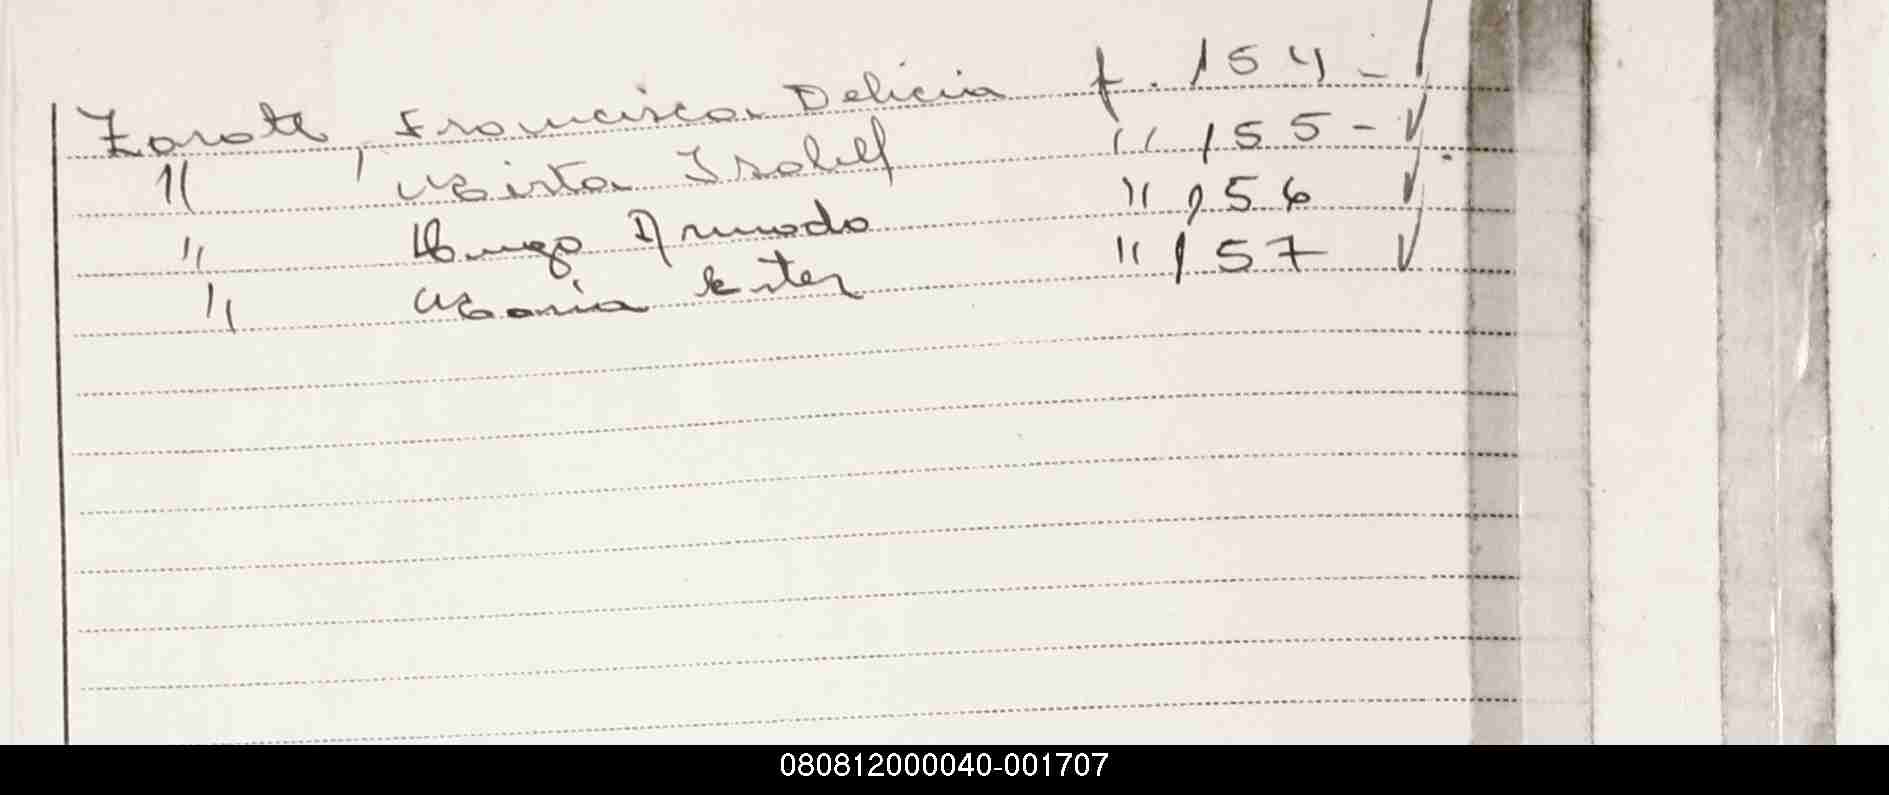 Zarate, Francisca Delicia f. 154 - ✓
" , Mirta Isabel " 155 - ✓
" Hugo Armado " 156 ✓
" Maria Ester " 157 ✓
080812000040-001707